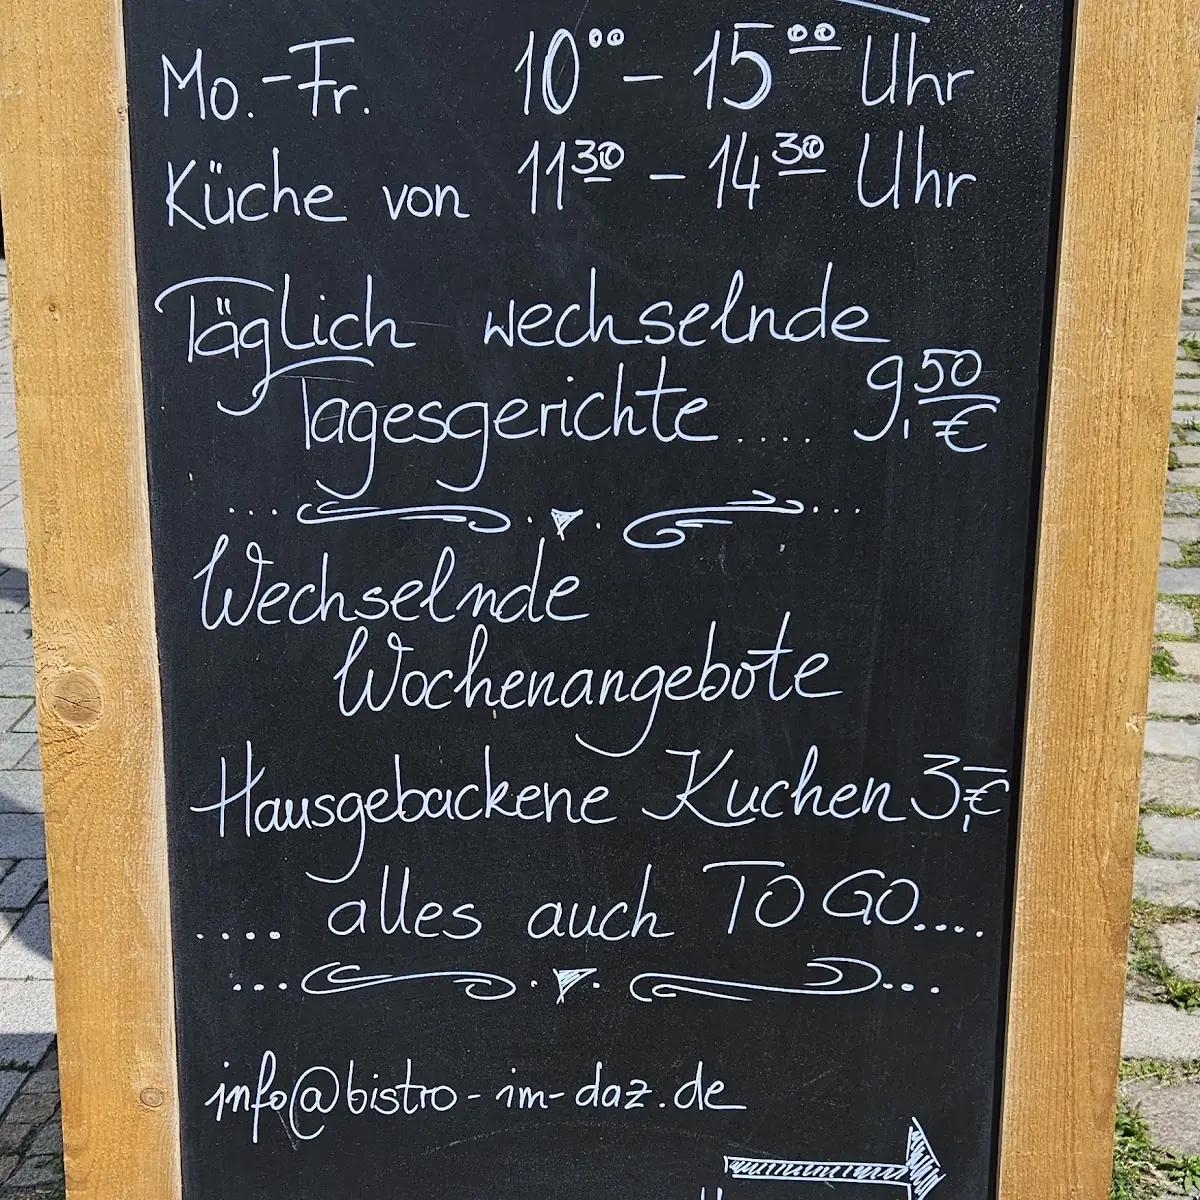 Mo.-Fr. 10⁰⁰ - 15⁰⁰ Uhr
Küche von 11³⁰ - 14³⁰ Uhr
Täglich wechselnde
Tagesgerichte.... 9,50 €
Wechselnde
Wochenangebote
Hausgebackene Kuchen 3,- €
.... alles auch TO GO....
info@bistro-im-daz.de